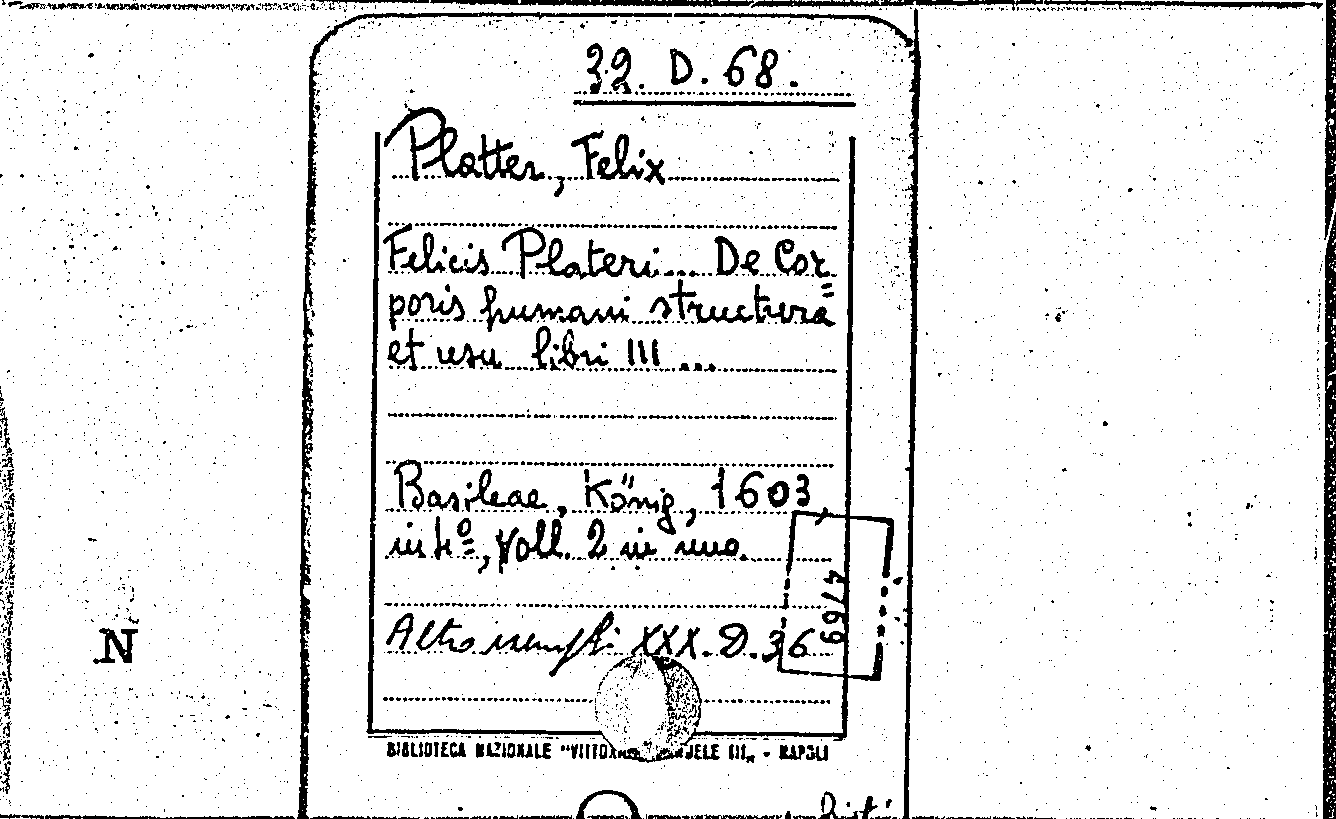 32. D. 68.
Platter, Felix
Felicis Plateri... De Cor=
poris humani structura
et usu libri III ...
Basileae, König, 1603,
in 4º, Voll. 2 in uno.
4769
Altro XXX. D. 36
N
BIBLIOTECA NAZIONALE "VITTORIO EMANUELE III„ - NAPOLI